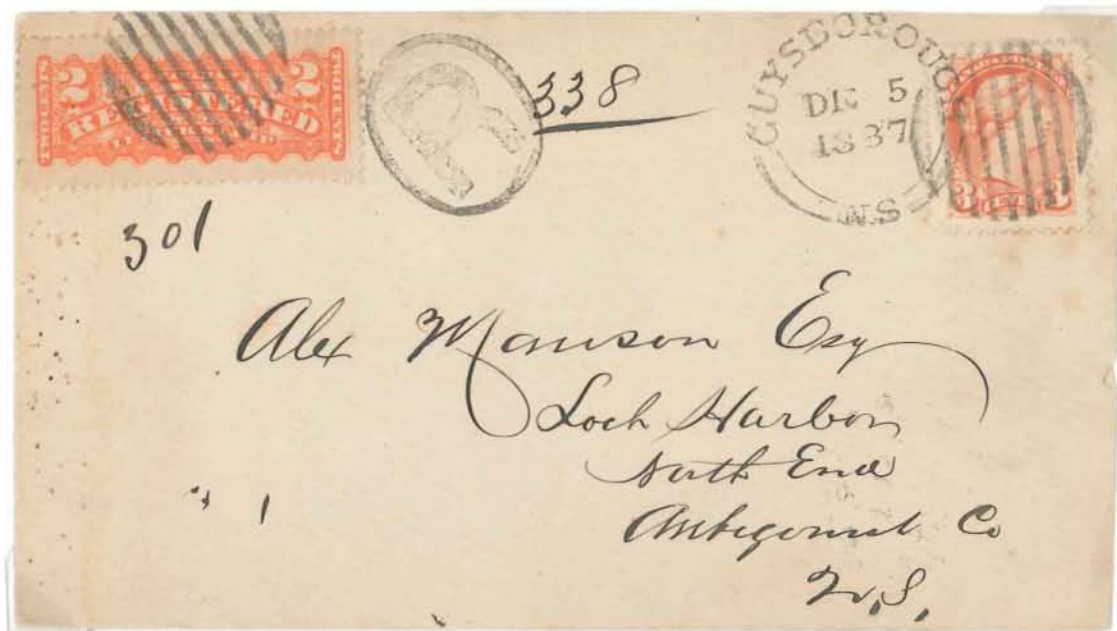 2 REGISTERED 2
TWO CENTS
TWO CENTS
R
338
GUYSBOROUGH
DE 5
1887
N.S
3 CENTS 3
301
Alex Manson Esq
Loch Harbor
North End
Antigonish Co
N.S.
1